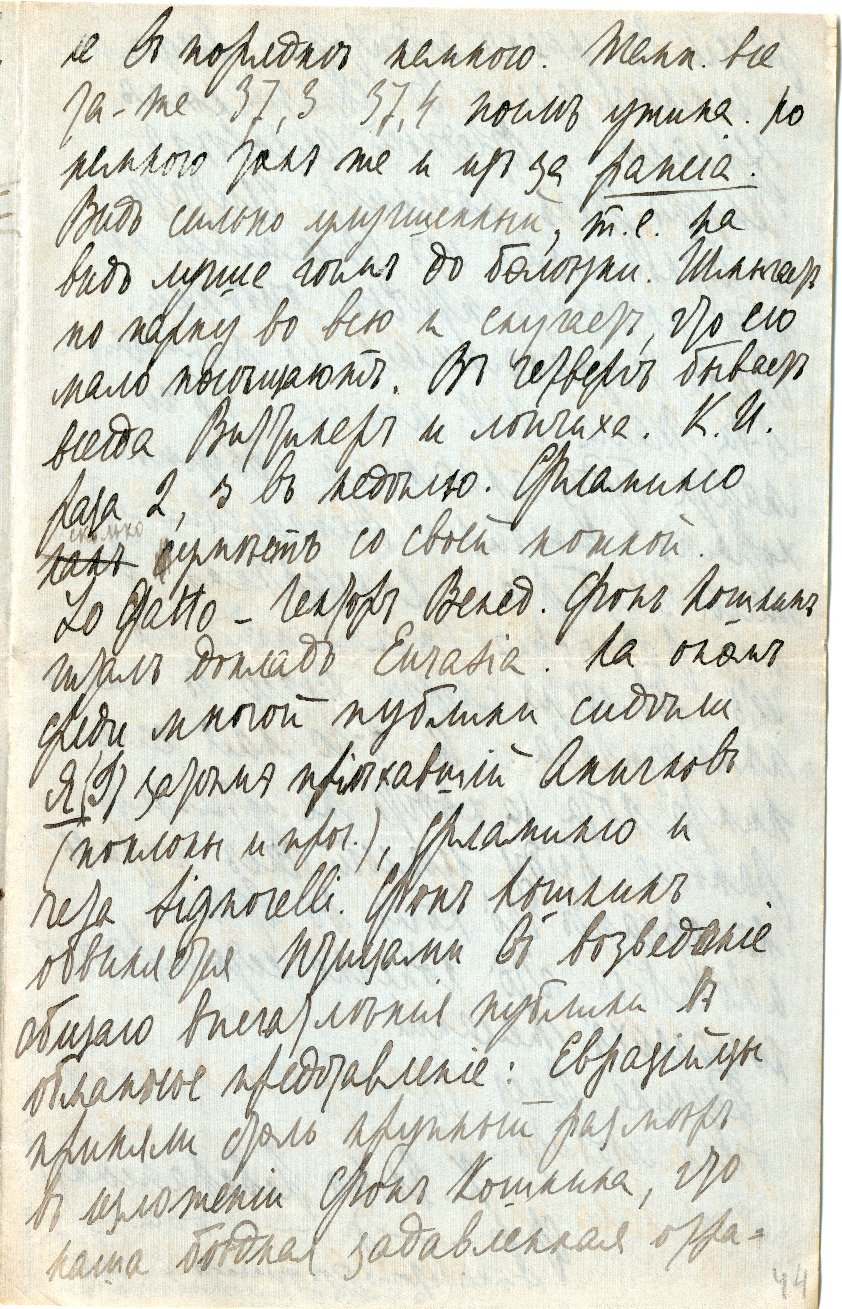 не въ порядкѣ немного. Темп. все
та-же 37,3 37,4 послѣ ужина. но
немного тоже и изъ за pancia.
Видъ сильно улучшенный, т.е. на
видъ лучше чѣмъ до болѣзни. Шлягаетъ
по парку во всю и скучаетъ, что его
мало посѣщаютъ. Въ четвергъ бываетъ
всегда и К. И.
раза 2, 3 въ недѣлю. Фламинго
какъ сколько со своей ножкой.
Lo Gatto – Венед. Фонъ Кошкинъ
читалъ докладъ Eurasia. На окнѣ
среди многой публики сидѣли
Я (?) затѣмъ пріѣхавшій Аничковъ
(поклоны и проч.), Фламинго и
чета Signorelli. Фонъ Кошкинъ
обвиняется птицами въ возведеніе
общаго впечатлѣнія публики въ
обманное представленіе: Евразійцы
приняли столь крупный размѣръ
въ изложеніи Фонъ Кошкина, что
наша бѣдная задавленная стра-
44